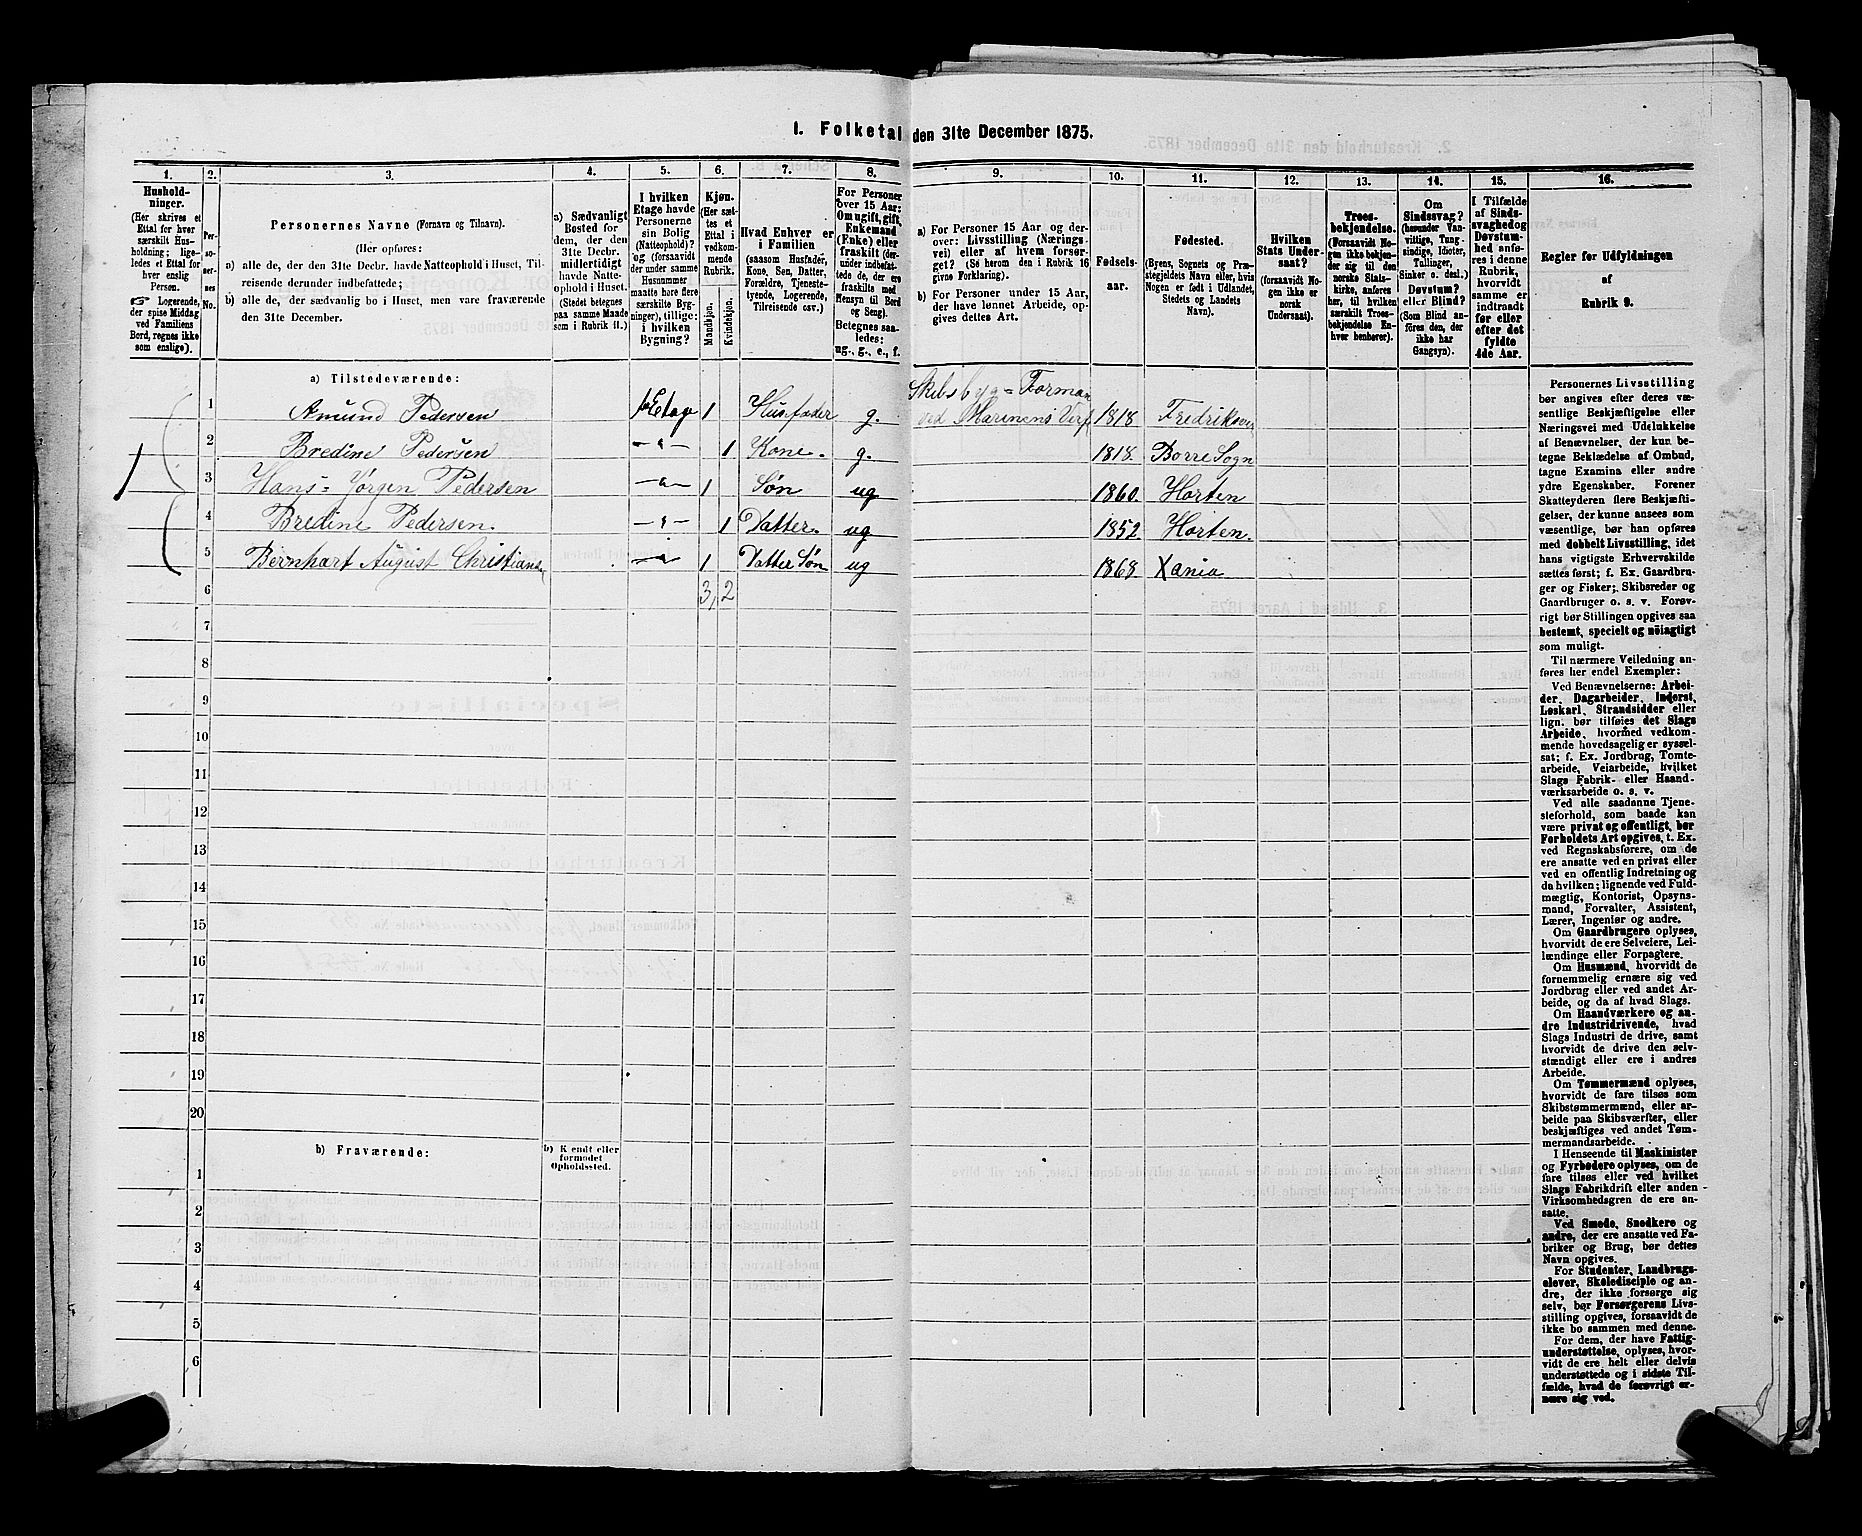 1. Folketal den 31te December 1875.
1.
2.
3.
4.
5.
6.
7.
8.
9.
10.
11.
12.
13.
14.
15.
16.
Hushold-
ninger.
(Her skrives et
Ettal for hver
særskilt Hus-
holdning; lige-
ledes et Ettal for
hver enslig
Person.
☞ Logerende,
der spise Middag
ved Familiens
Bord, regnes ikke
som enslige).
Per-
so-
ner-
nes
No.
Personernes Navne (Fornavn og Tilnavn).
(Her opføres:
a) alle de, der den 31te Decbr. havde Natteophold i Huset, Til-
reisende derunder indbefattede;
b) alle de, der sædvanlig bo i Huset, men vare fraværende
den 31te December.
a) Sædvanligt
Bosted for
dem, der den
31te Decbr.
midlertidigt
havde Natte-
ophold i Huset.
(Stedet betegnes
paa samme Maade
som i Rubrik 11.)
I hvilken
Etage havde
Personerne
sin Bolig
(Natteophold)?
og (forsaavidt
der under samme
Husnummer
maatte høre flere
særskilte Byg-
ninger), tillige:
i hvilken
Bygning?
Kjøn.
(Her sæt-
tes et
Ettal i
vedkom-
mende
Rubrik.
Mandkjøn.
Kvindekjøn.
Hvad Enhver er
i Familien
(saasom Husfader,
Kone, Søn, Datter,
Forældre, Tjeneste-
tyende, Logerende,
Tilreisende osv.)
For Personer
over 15 Aar:
Om ugift, gift,
Enkemand
(Enke) eller
fraskilt (der-
under indbefat-
tede de, der ere
fraskilte med
Hensyn til Bord
og Seng).
Betegnes saa-
ledes:
ug., g., e., f.
a) For Personer 15 Aar og der-
over: Livsstilling (Nærings-
vei) eller af hvem forsør-
get? (Se herom den i Rubrik 16
givne Forklaring).
b) For Personer under 15 Aar,
der have lønnet Arbeide, op-
gives dettes Art.
Fødsels-
aar.
Fødested.
(Byens, Sognets og Præ-
stegjeldets Navn eller, hvis
Nogen er født i Udlandet,
Stedets og Landets
Navn).
Hvilken
Stats Under-
saat?
(forsaavidt No-
gen ikke er
norsk
Undersaat).
Troes-
bekjendelse.
(Forsaavidt No-
gen ikke bekjen-
der sig til den
norske Stats-
kirke, anføres
her, til hvilken
særskilt Troes-
bekjendelse En-
hver henhører).
Om
Sindssvag?
(herunder Van-
vittige, Tung-
sindige, Idioter,
Tullinger,
Sinker o. desl.)
Døvstum?
eller Blind?
(Som Blind an-
føres den, der
ikke har
Gangsyn).
I Tilfælde
af Sinds-
svaghed og
Døvstum-
hed anfø-
res i denne
Rubrik,
hvorvidt
samme er
indtraadt
før eller
efter det
fyldte
4de Aar.
Regler for Udfyldningen
af
Rubrik 9.
a) Tilstedeværende:
Skibsbyg=Forman
1 Amund Pedersen 1ste Etage 1 Husfader g. ved Marinens Verft 1818 Fredriksvern
2 Bredine Pedersen —"— 1 Kone. g. 1818. Borre Sogn
1 3 Hans=Jørgen Pedersen —"— 1 Søn ug 1860. Horten
4 Bredine Pedersen. —"— 1 Datter. ug 1852 Horten.
5 Bernhart August Christiansen —"— 1 Datter Søn ug 1868 Xania
6 3, 2
7
8
9
10
11
12
13
14
15
16
17
18
19
20
b) Fraværende:
b) Kendt eller
formodet
Opholdssted.
1
2
3
4
5
6
Personernes Livsstilling
bør angives efter deres væ-
sentlige Beskjæftigelse eller
Næringsvei med Udelukkelse
af Benævnelser, der kun be-
tegne Beklædelse af Ombud,
tagne Examina eller andre
ydre Egenskaber. Forener
Skatteyderen flere Beskjæfti-
gelser, der kunne ansees som
væsentlige, bør han opføres
med dobbelt Livsstilling, idet
hans vigtigste Erhvervskilde
sættes først; f. Ex. Gaardbru-
ger og Fisker; Skibsreder og
Gaardbruger o. s. v. Forøv-
rigt bør Stillingen opgives saa
bestemt, specielt og nøiagtigt
som muligt.
Til nærmere Veiledning an-
føres her endel Exempler:
Ved Benævnelserne: Arbei-
der, Dagarbeider, Inderst,
Løskarl, Strandsidder eller
lign. bør tilføies det Slags
Arbeide, hvormed vedkom-
mende hovedsagelig er syssel-
sat; f. Ex. Jordbrug, Tomte-
arbeide, Veiarbeide, hvilket
Slags Fabrik- eller Haand-
værksarbeide o. s. v.
Ved alle saadanne Tjene-
steforhold, som baade kan
være privat og offentligt, bør
Forholdets Art opgives, t. Ex.
ved Regnskabsførere, om de
ere ansatte ved en privat eller
ved en offentlig Indretning og
da hvilken; lignende ved Fuld-
mægtig, Kontorist, Opsyns-
mand, Forvalter, Assistent,
Lærer, Ingeniør og andre.
Om Gaardbrugere oplyses,
hvorvidt de ere Selveiere, Lei-
lændinge eller Forpagtere.
Om Husmænd, hvorvidt de
fornemmelig ernære sig ved
Jordbrug eller ved andet Ar-
beide, og da af hvad Slags.
Om Haandværkere og an-
dre Industridrivende, hvad
Slags Industri de drive, samt
hvorvidt de drive den selv-
stændigt eller ere i andres
Arbeide.
Om Tømmermænd oplyses,
hvorvidt de fare tilsøs som
Skibstømmermænd, eller ar-
beide paa Skibsværfter, eller
beskjæftiges ved andet Tøm-
mermandsarbeide.
I Henseende til Maskinister
og Fyrbødere oplyses, om de
fare tilsøs eller ved hvilket
Slags Fabrikdrift eller anden
Virksomhedsgren de ere an-
satte.
Ved Smede, Snedkere og
andre, der ere ansatte ved Fa-
briker og Brug, bør dettes
Navn opgives.
For Studenter, Landbrugs-
elever, Skoledisciple og an-
dre, der ikke forsørge sig
selv, bør Forsørgerens Livs-
stilling opgives, forsaavidt de
ikke bo sammen med denne.
For dem, der have Fattig-
understøttelse, oplyses, hvor-
vidt de ere helt eller delvis
understøttede og i sidste Til-
fælde, hvad de forøvrigt er-
nære sig ved.